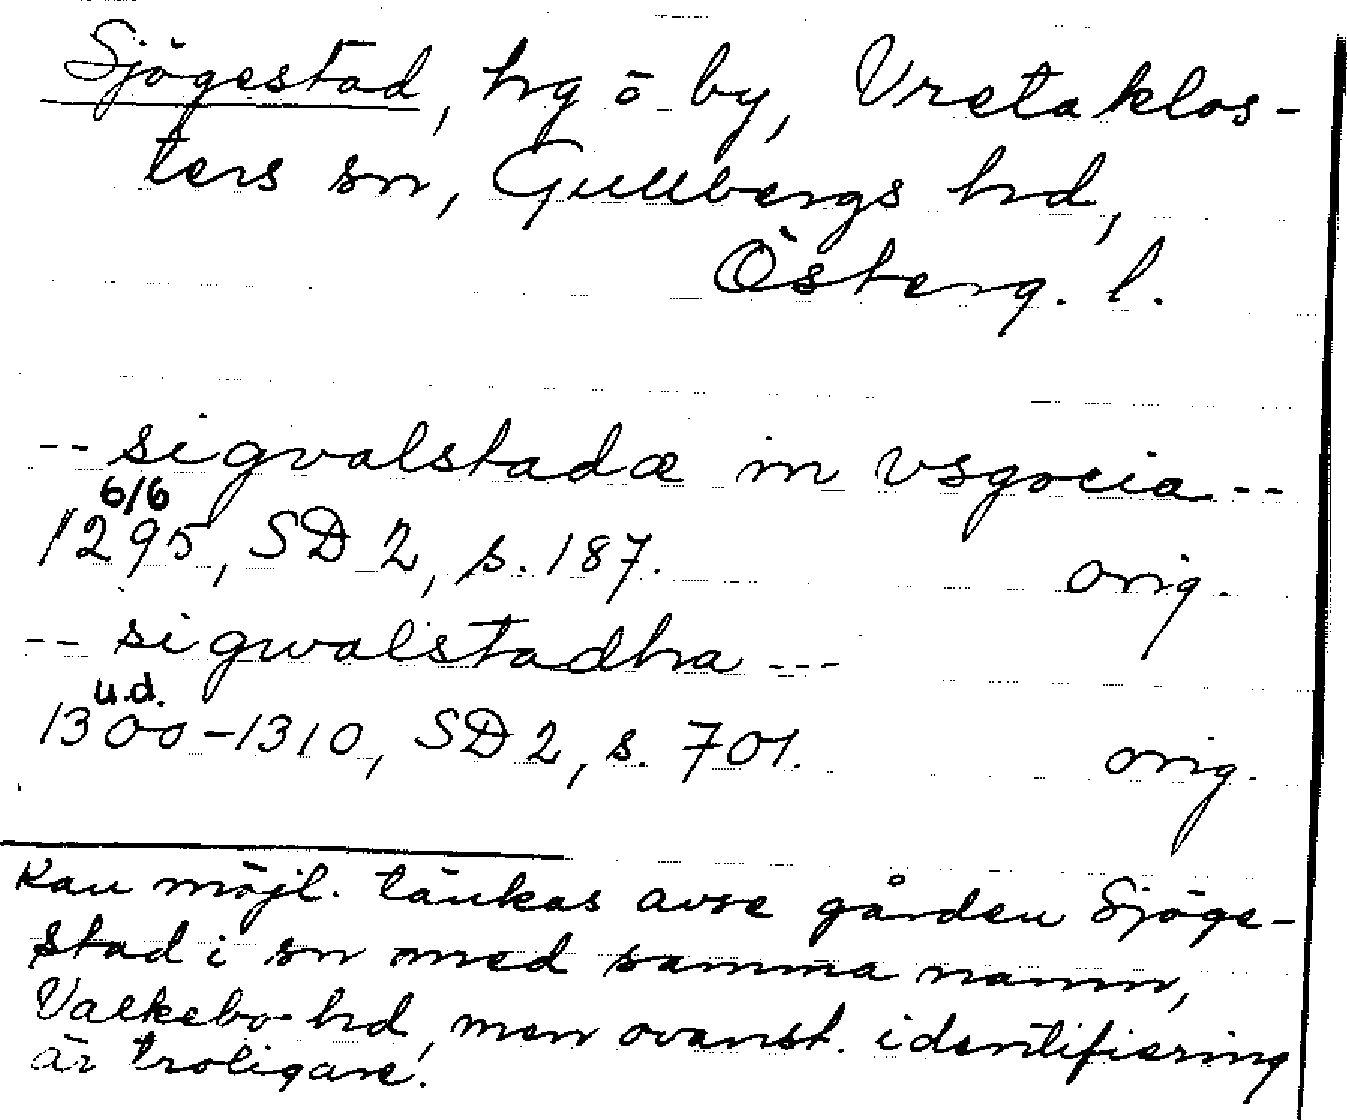 Sjögestad, hg ö by, Vretaklos-
ters sn, Gullbergs hd,
Österg. l.
-- sigvalstadæ in vsgocia --
6/6
1295, SD 2, s. 187. orig.
-- sigwalstadha ---
u.d.
1300-1310, SD 2, s. 701. orig.
Kan möjl. tänkas avse gården Sjöge-
stad i sn med samma namn,
Valkebo hd, men ovanst. identifiering
är troligare.